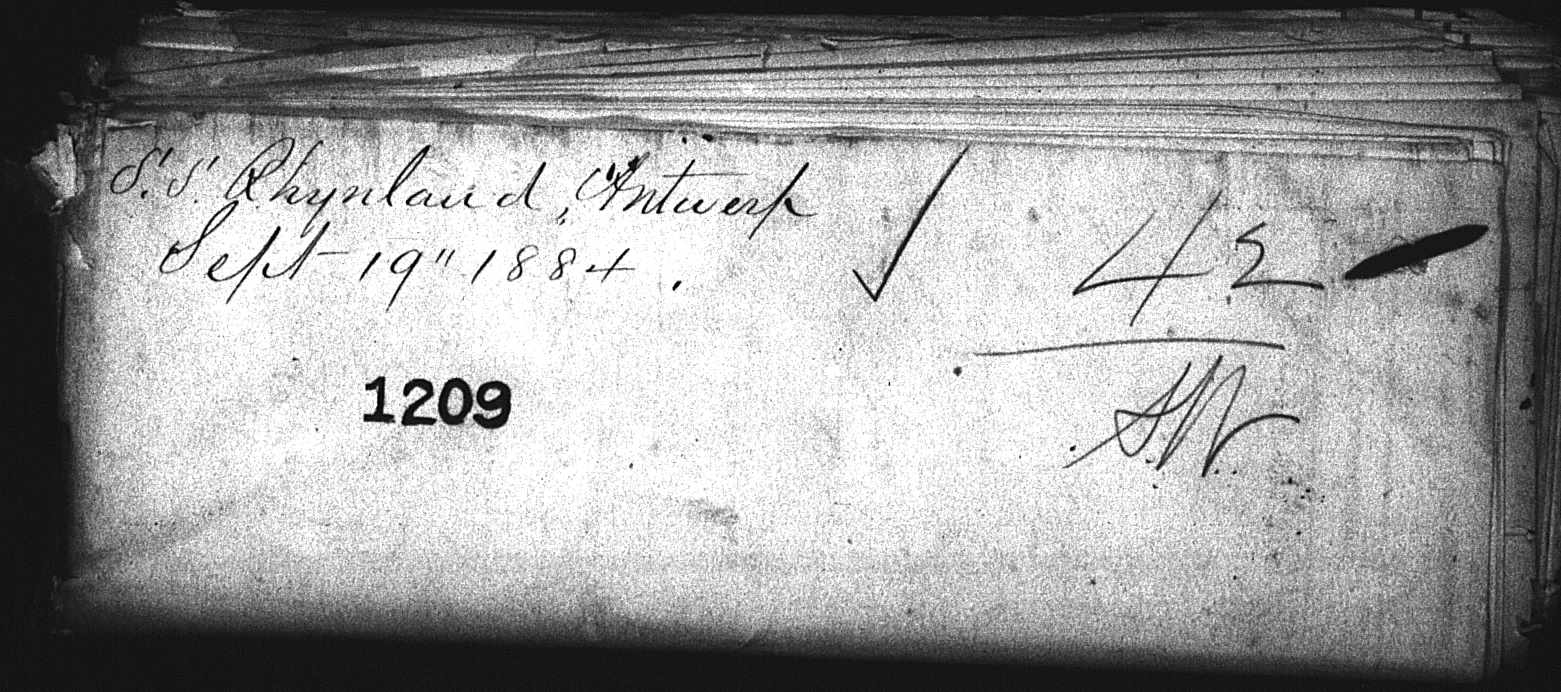 S.S. Rhynland, Antwerp
Sept 19" 1884.
✓
42
1209